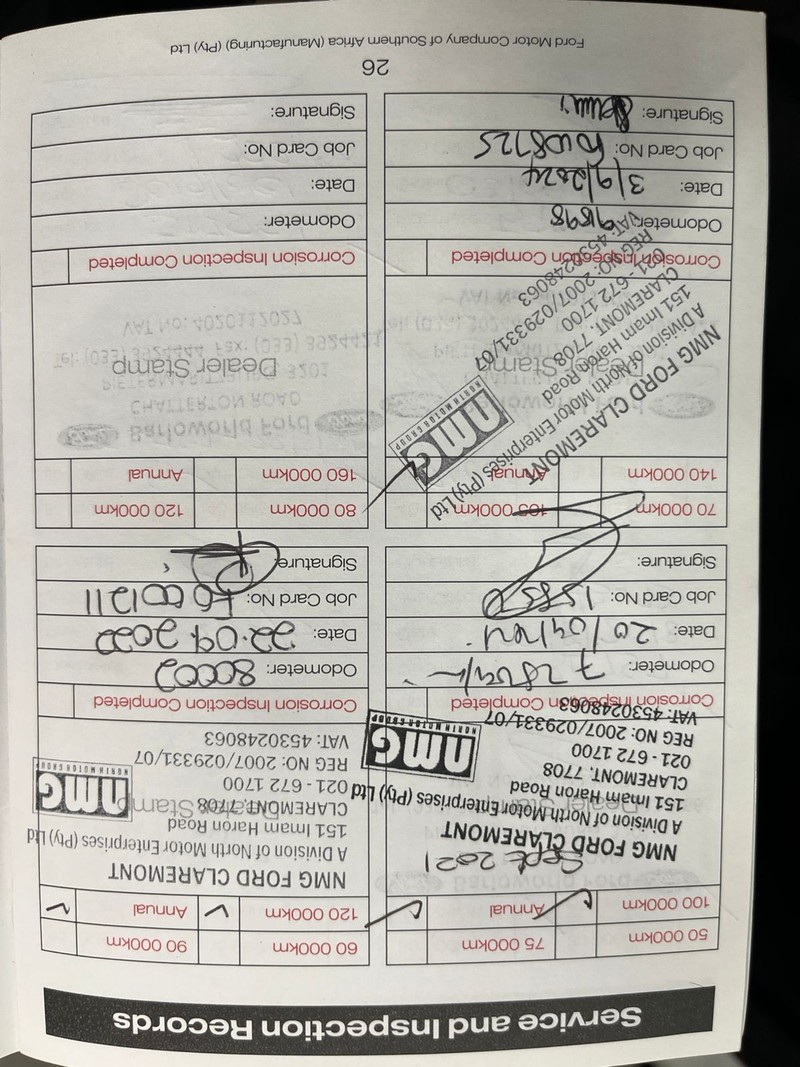 Service and Inspection Records
50 000km 75 000km
100 000km Annual
Sept 2021
NMG FORD CLAREMONT
A Division of North Motor Enterprises (Pty) Ltd
151 Imam Haron Road
CLAREMONT. 7708
021 - 672 1700
REG NO: 2007/029331/07
VAT: 4530248063
nmg
NORTH MOTOR GROUP
Dealer Stamp
Corrosion Inspection Completed
Odometer:
Date: 20/09/2021
Job Card No:
Signature:
60 000km 90 000km
120 000km Annual
NMG FORD CLAREMONT
A Division of North Motor Enterprises (Pty) Ltd
151 Imam Haron Road
CLAREMONT. 7708
021 - 672 1700
REG NO: 2007/029331/07
VAT: 4530248063
nmg
NORTH MOTOR GROUP
Dealer Stamp
Corrosion Inspection Completed
Odometer: 80002
Date: 22.09.2022
Job Card No:
Signature:
70 000km 105 000km
140 000km Annual
NMG FORD CLAREMONT
A Division of North Motor Enterprises (Pty) Ltd
151 Imam Haron Road
CLAREMONT. 7708
021 - 672 1700
REG NO: 2007/029331/07
VAT: 4530248063
nmg
NORTH MOTOR GROUP
Dealer Stamp
Corrosion Inspection Completed
Odometer: 91898
Date: 3/9/2024
Job Card No:
Signature:
80 000km 120 000km
160 000km Annual
Dealer Stamp
Corrosion Inspection Completed
Odometer:
Date:
Job Card No:
Signature:
26
Ford Motor Company of Southern Africa (Manufacturing) (Pty) Ltd